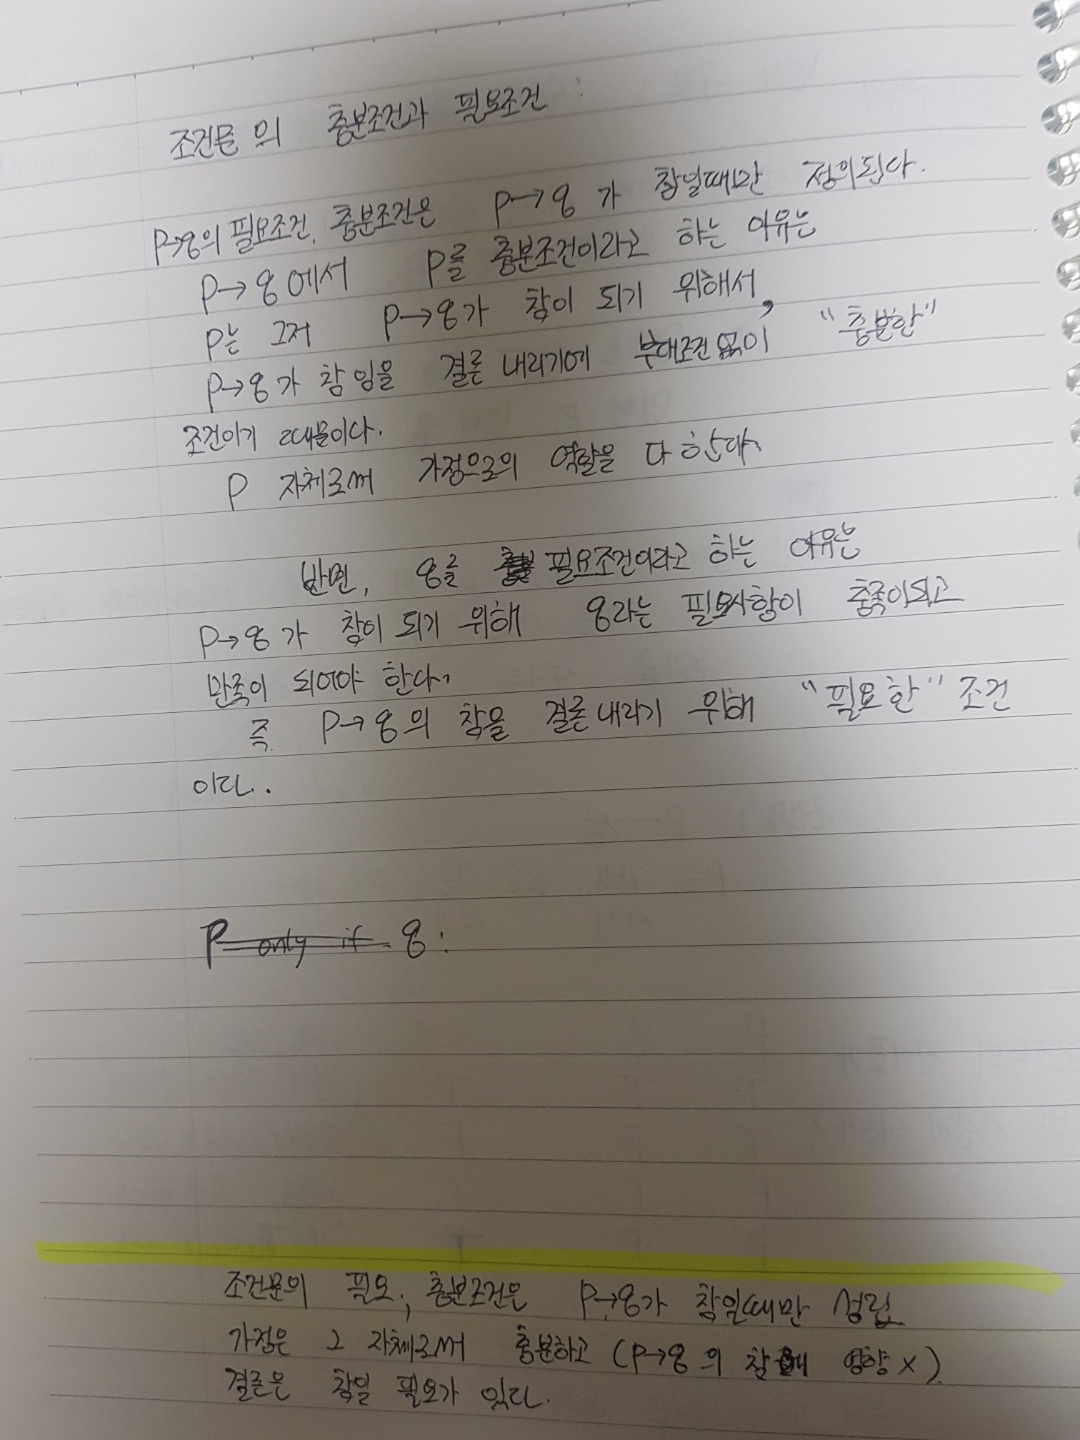 조건문의 충분조건과 필요조건 :
P→q의 필요조건, 충분조건은 P→q가 참일때만 정의된다.
P→q에서 P를 충분조건이라고 하는 이유는
P는 그저 P→q가 참이 되기 위해서,
P→q가 참임을 결론 내리기에 부대조건 없이 "충분한"
조건이기 때문이다.
P 자체로써 가정으로의 역할을 다 한다.
반면, q를 필요조건이라고 하는 이유는
P→q가 참이 되기 위해 q라는 필요사항이 충족이되고
만족이 되어야 한다.
즉 P→q의 참을 결론내리기 위해 "필요한" 조건
이다.
P only if q :
조건문의 필요, 충분조건은 P→q가 참일때만 성립
가정은 그 자체로써 충분하고 (P→q의 참에 영향 X)
결론은 참일 필요가 있다.